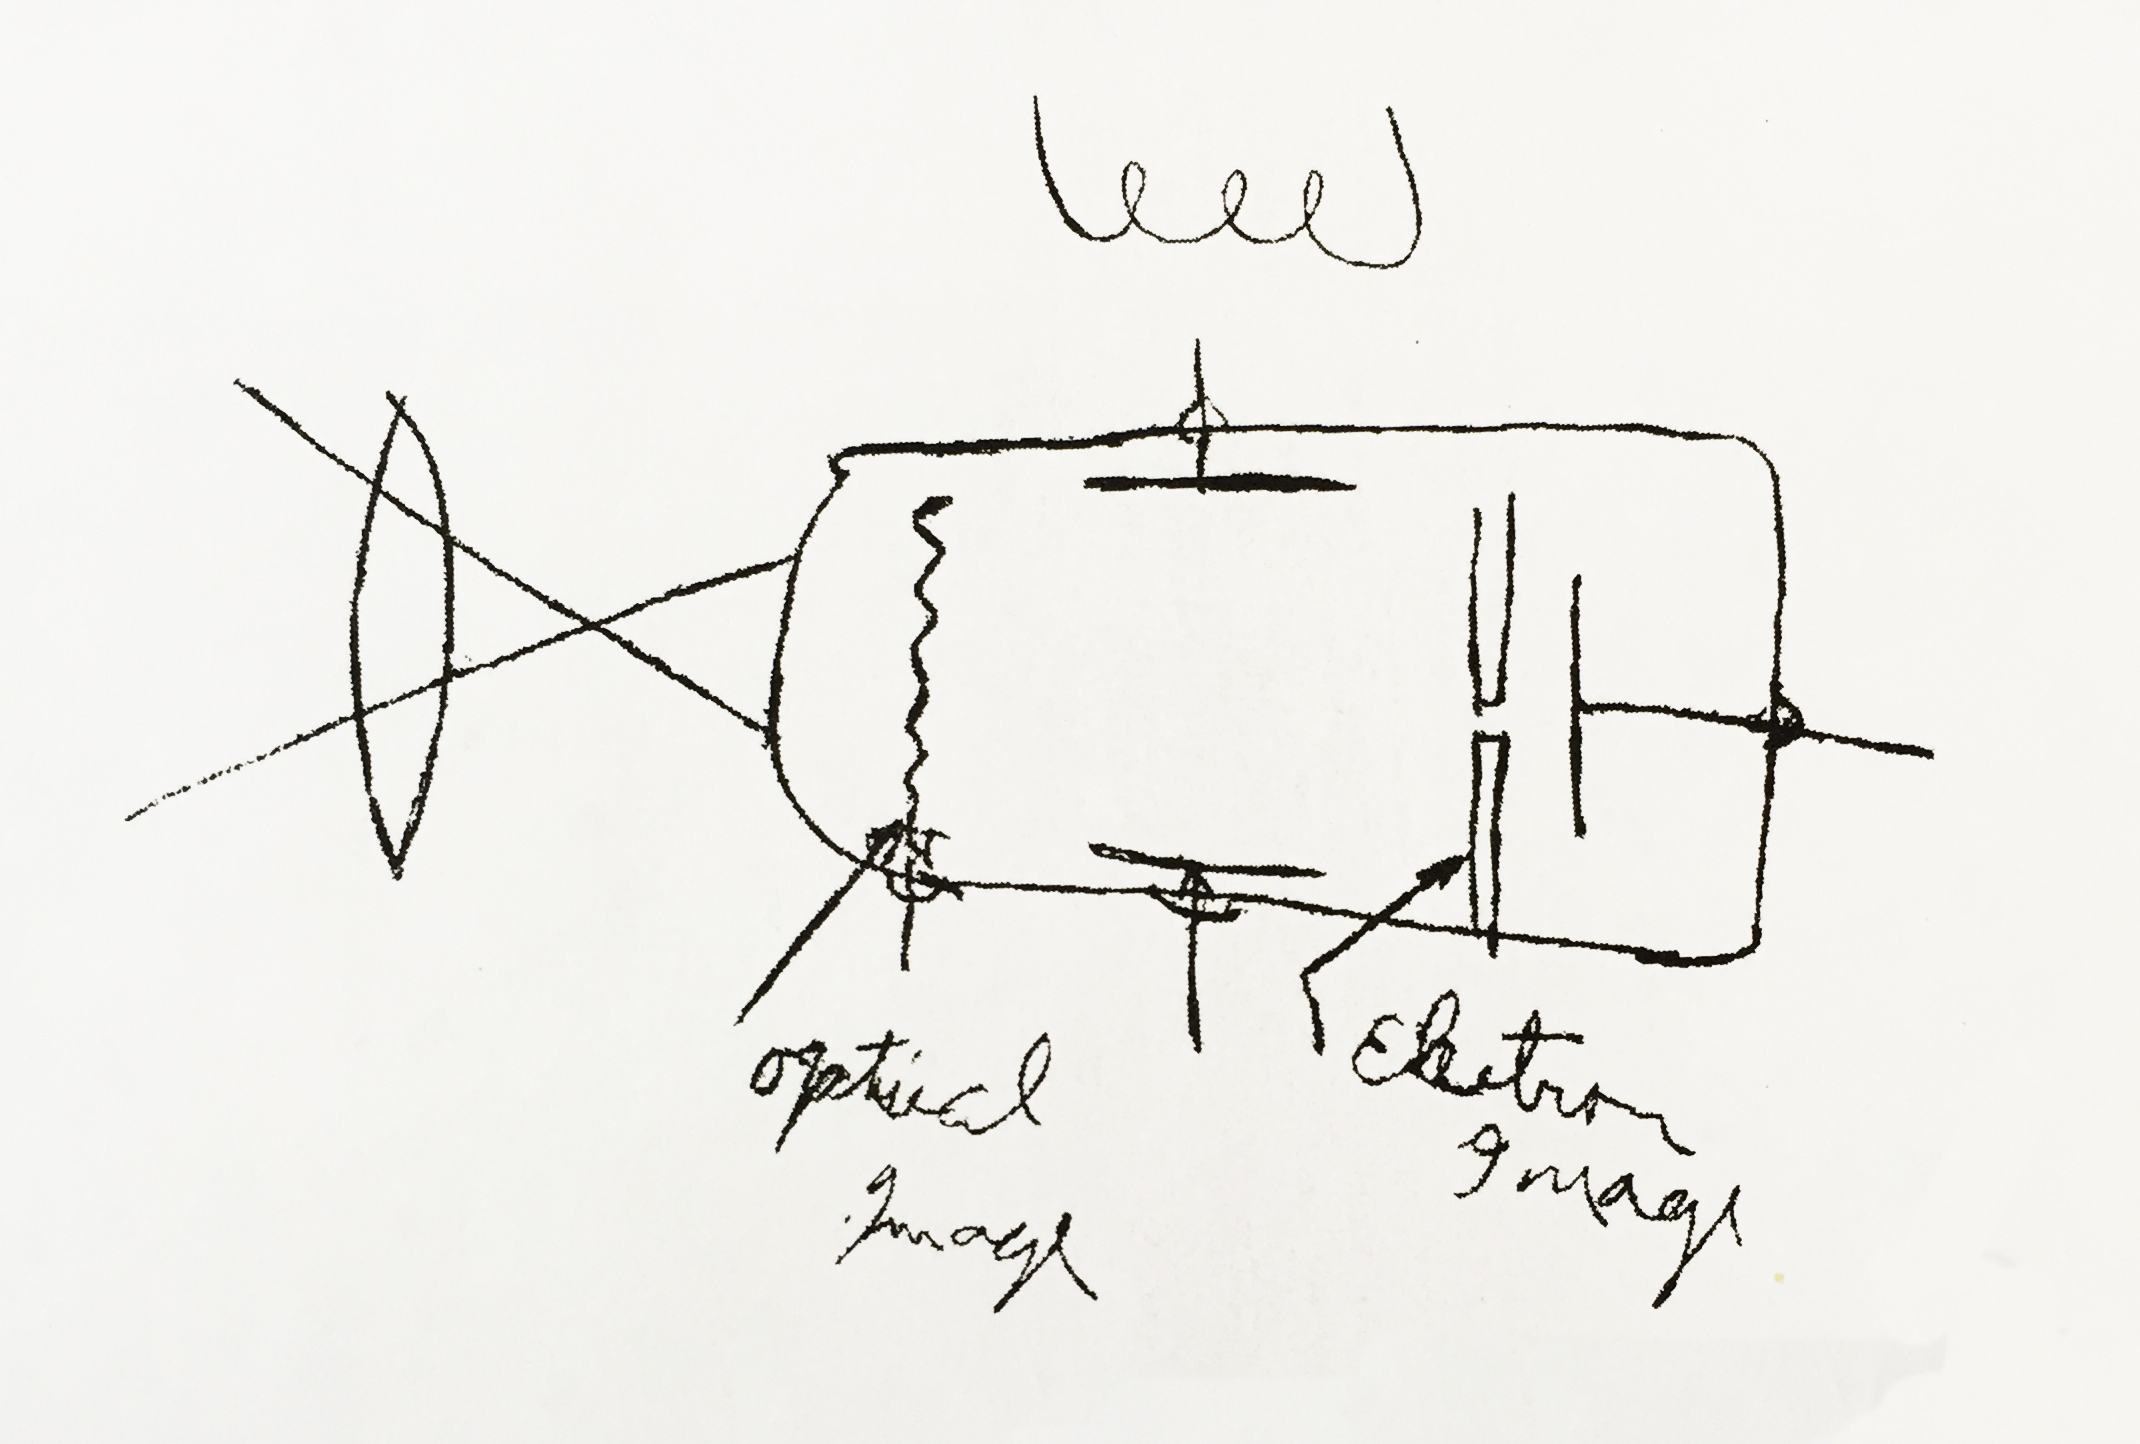 optical
Image
Electron
Image